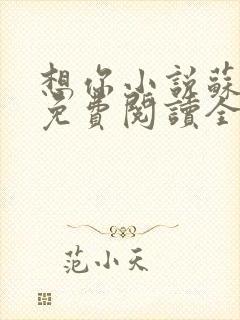 想你小説蘇
免費閱讀全
范小天